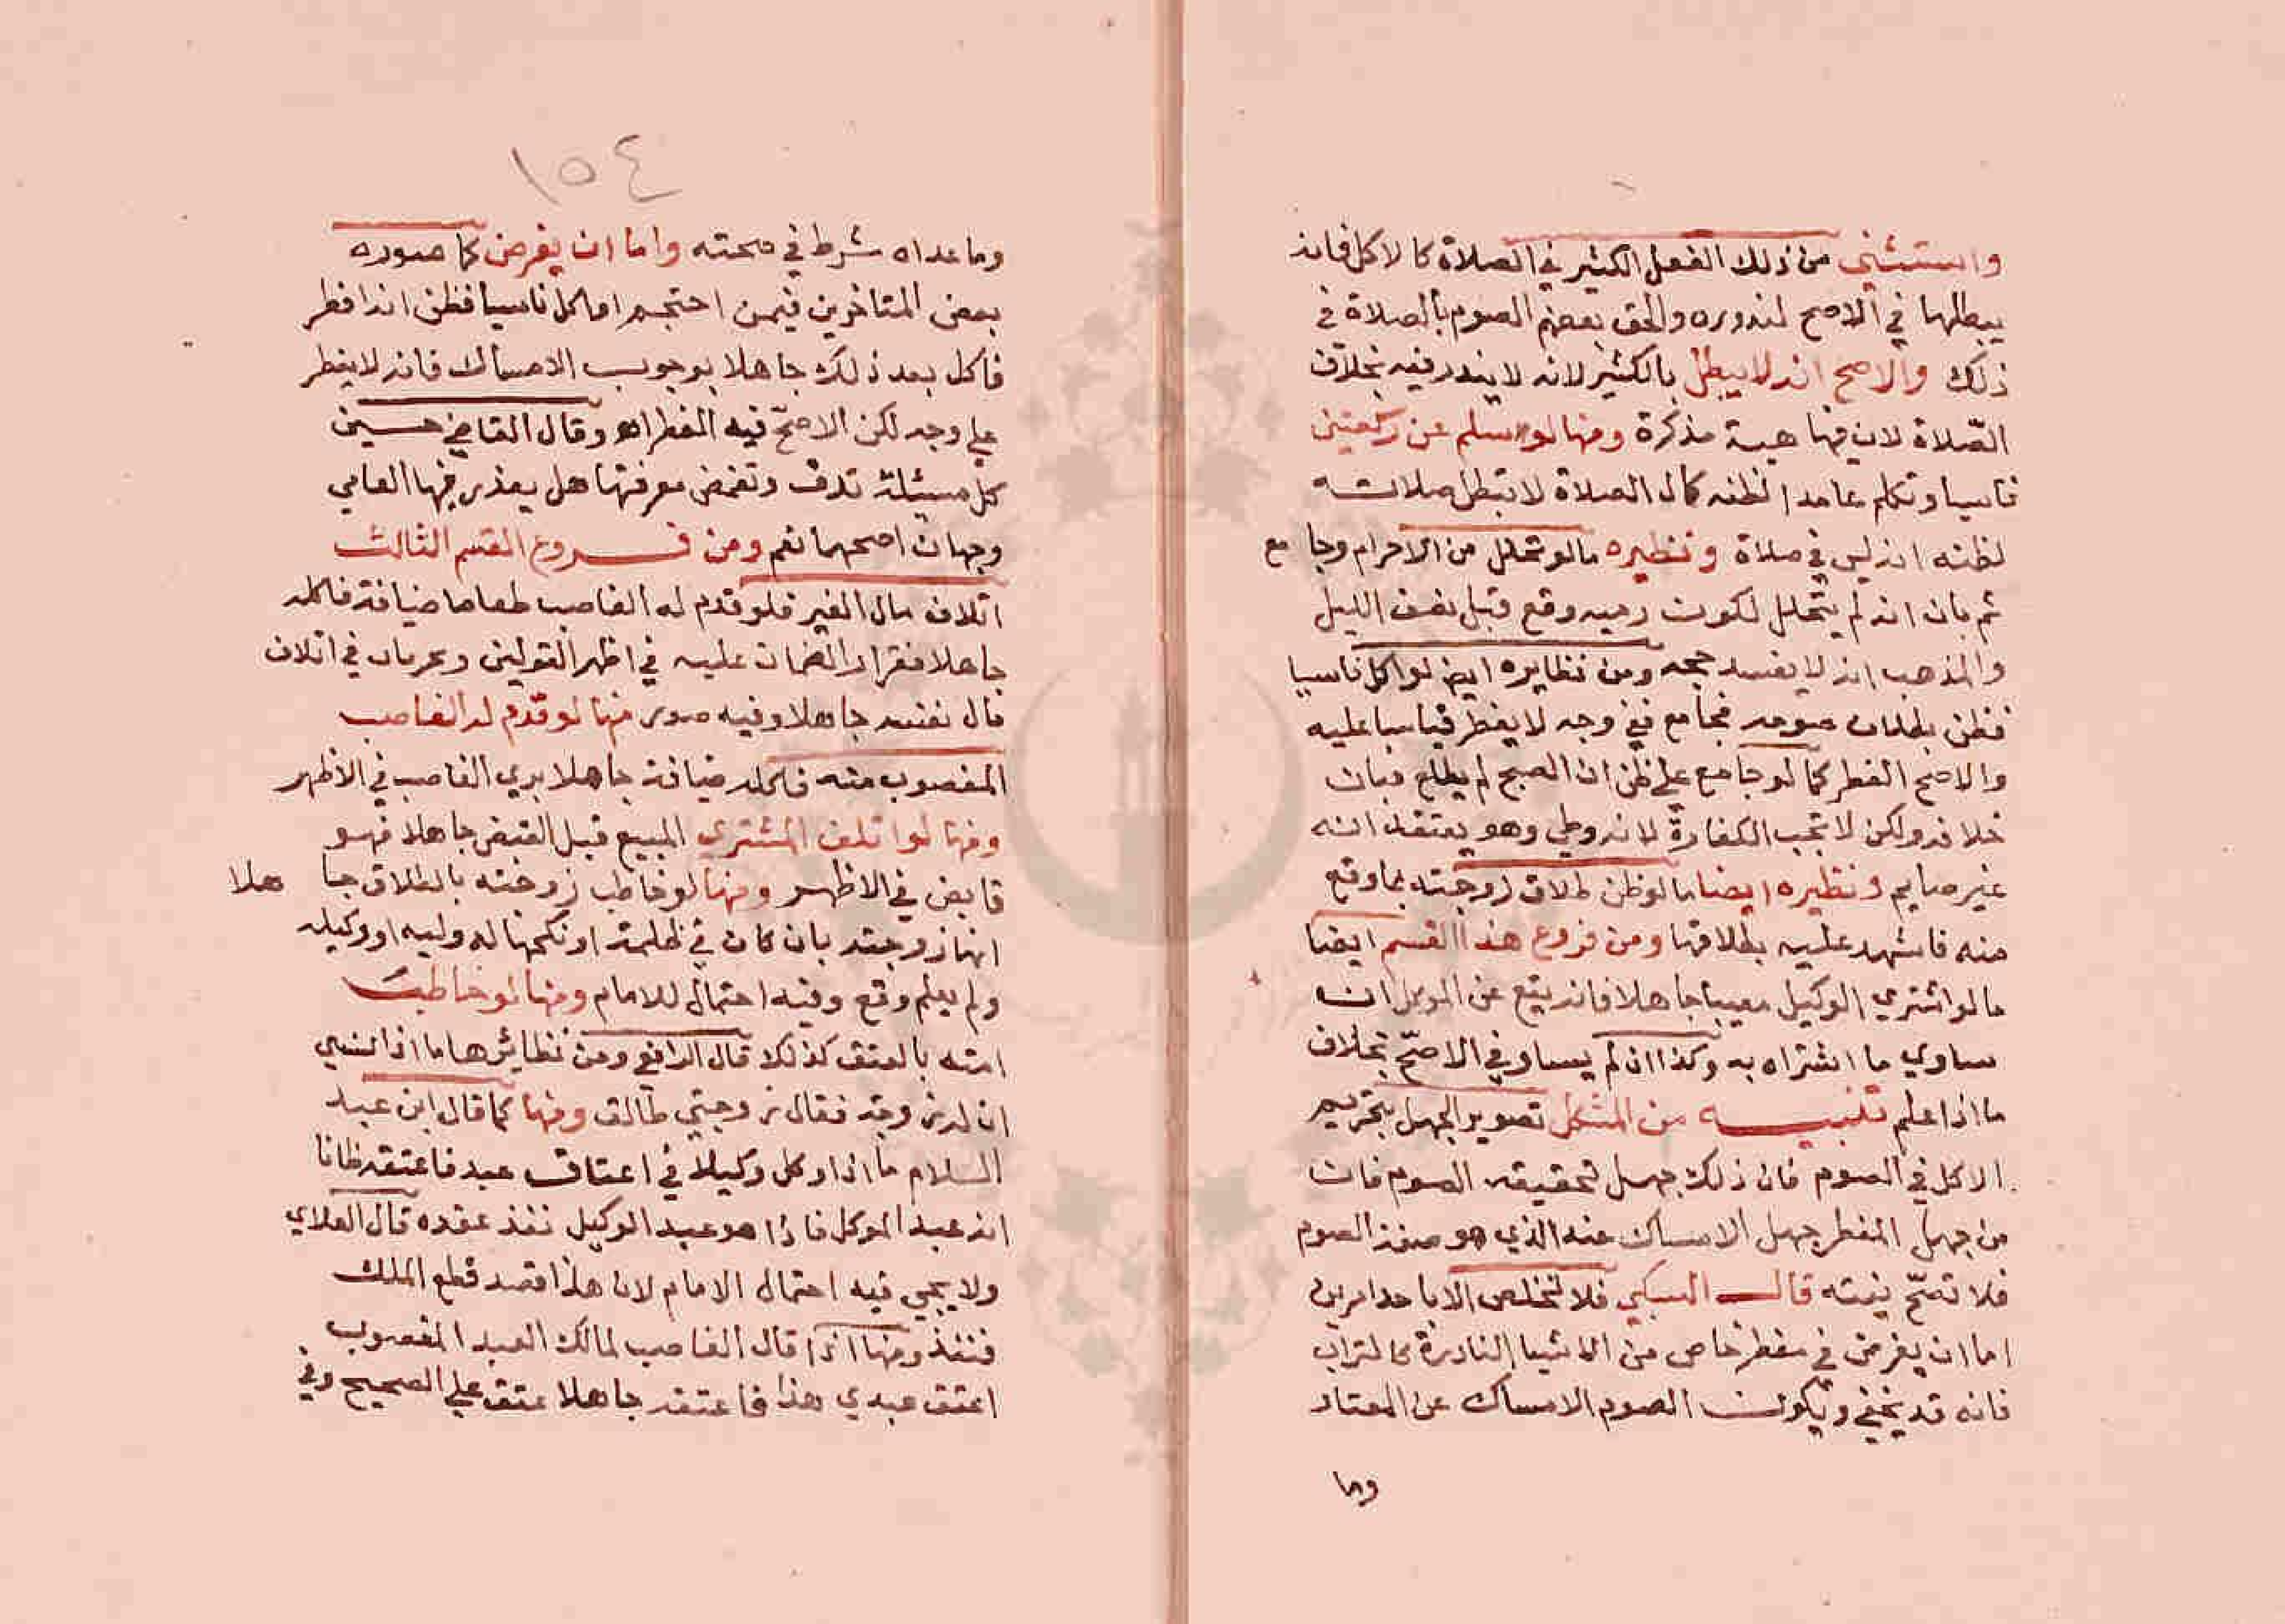 واستثني من ذلك الفعل الكثير في الصلاة كالاكل فانه
يبطلها في الاصح لندوره والحق بعضهم الصوم بالصلاة في
ذلك والاصح انه لا يبطل بالكثير لانه لا يندر فيه بخلاف
الصّلاة لان فيها هيبة مذكرة ومنها لو سلم عن ركعتين
ناسيا وتكلم عامدا لظنه كمال الصلاة لا تبطل صلاته
لظنه انه ليس في صلاة ونظيره ما لو تحلل من الاحرام وجامع
ثم بان انه لم يتحلل لكون رميه وقع قبل نصف الليل
والمذهب انه لا يفسد حجه ومن نظايره ايض لو اكل ناسيا
فظن بطلان صومه فجامع ففي وجه لا يفطر قياسا عليه
والاصح الفطر كما لو جامع على ظن ان الصبح لم يطلع فبان
خلافه ولكن لا تجب الكفارة لانه وطي وهو يعتقد انه
غير صايم ونظيره ايضا ما لو ظن طلاق زوجته بما وقع
منه فاشهد عليه بطلاقها ومن فروع هذا القسم ايضا
ما لو اشتري الوكيل معيبا جاهلا فانه يقع عن الموكل ان
ساوي ما اشتراه به وكذا ان لم يساو في الاصح بخلاف
ما اذا علم تنبيه من المشكل تصوير الجهل بتحريم
الاكل في الصوم فان ذلك جهل بحقيقة الصوم فان
من جهل المفطر جهل الامساك عنه الذي هو صفة الصوم
فلا تصح نيته قال السبكي فلا تخلص الا باحد امرين
اما ان يفرض في مفطر خاص من الاشيا النادرة كالتراب
فانه قد يخفي ويكون الصوم الامساك عن المعتاد
وما
١٥٤
وما عداه شرط في صحته واما ان يفرض كما صوره
بعض المتاخرين فيمن احتجم او اكل ناسيا فظن انه افطر
فاكل بعد ذلك جاهلا بوجوب الامساك فانه لا يفطر
علي وجه لكن الاصح فيه الفطر اه وقال القاضي حسين
كل مسئلة تدق وتغمض معرفتها هل يعذر فيها العامي
وجهان اصحهما نعم ومن فروع القسم الثالث
اتلاف مال الغير فلو قدم له الغاصب طعاما ضيافة فاكله
جاهلا فقرار الضمان عليه في اظهر القولين ويجريان في اتلاف
مال نفسه جاهلا وفيه صور منها لو قدم له الغاصب
المغصوب منه فاكله ضيافة جاهلا بري الغاصب في الاظهر
ومنها لو اتلف المشتري المبيع قبل القبض جاهلا فهو
قابض في الاظهر ومنها لو خاطب زوجته بالطلاق جاهلا
انها زوجته بان كان في ظلمة او نكحها له وليه او وكيله
ولم يعلم وقع وفيه احتمال للامام ومنها لو خاطب
امته بالعتق كذلك قال الرافعي ومن نظائرها ما اذا نسي
ان له زوجة فقال زوجتي طالق ومنها كما قال ابن عبد
السلام ما اذا وكل وكيلا في اعتاق عبد فاعتقه ظانا
انه عبد الموكل فاذا هو عبد الوكيل نفذ عقده قال العلاي
ولا يجي فيه احتمال الامام لان هذا قصد قطع الملك
فنفذ ومنها اذا قال الغاصب لمالك العبد المغصوب
اعتق عبدي هذا فاعتقه جاهلا عتق علي الصحيح وفي